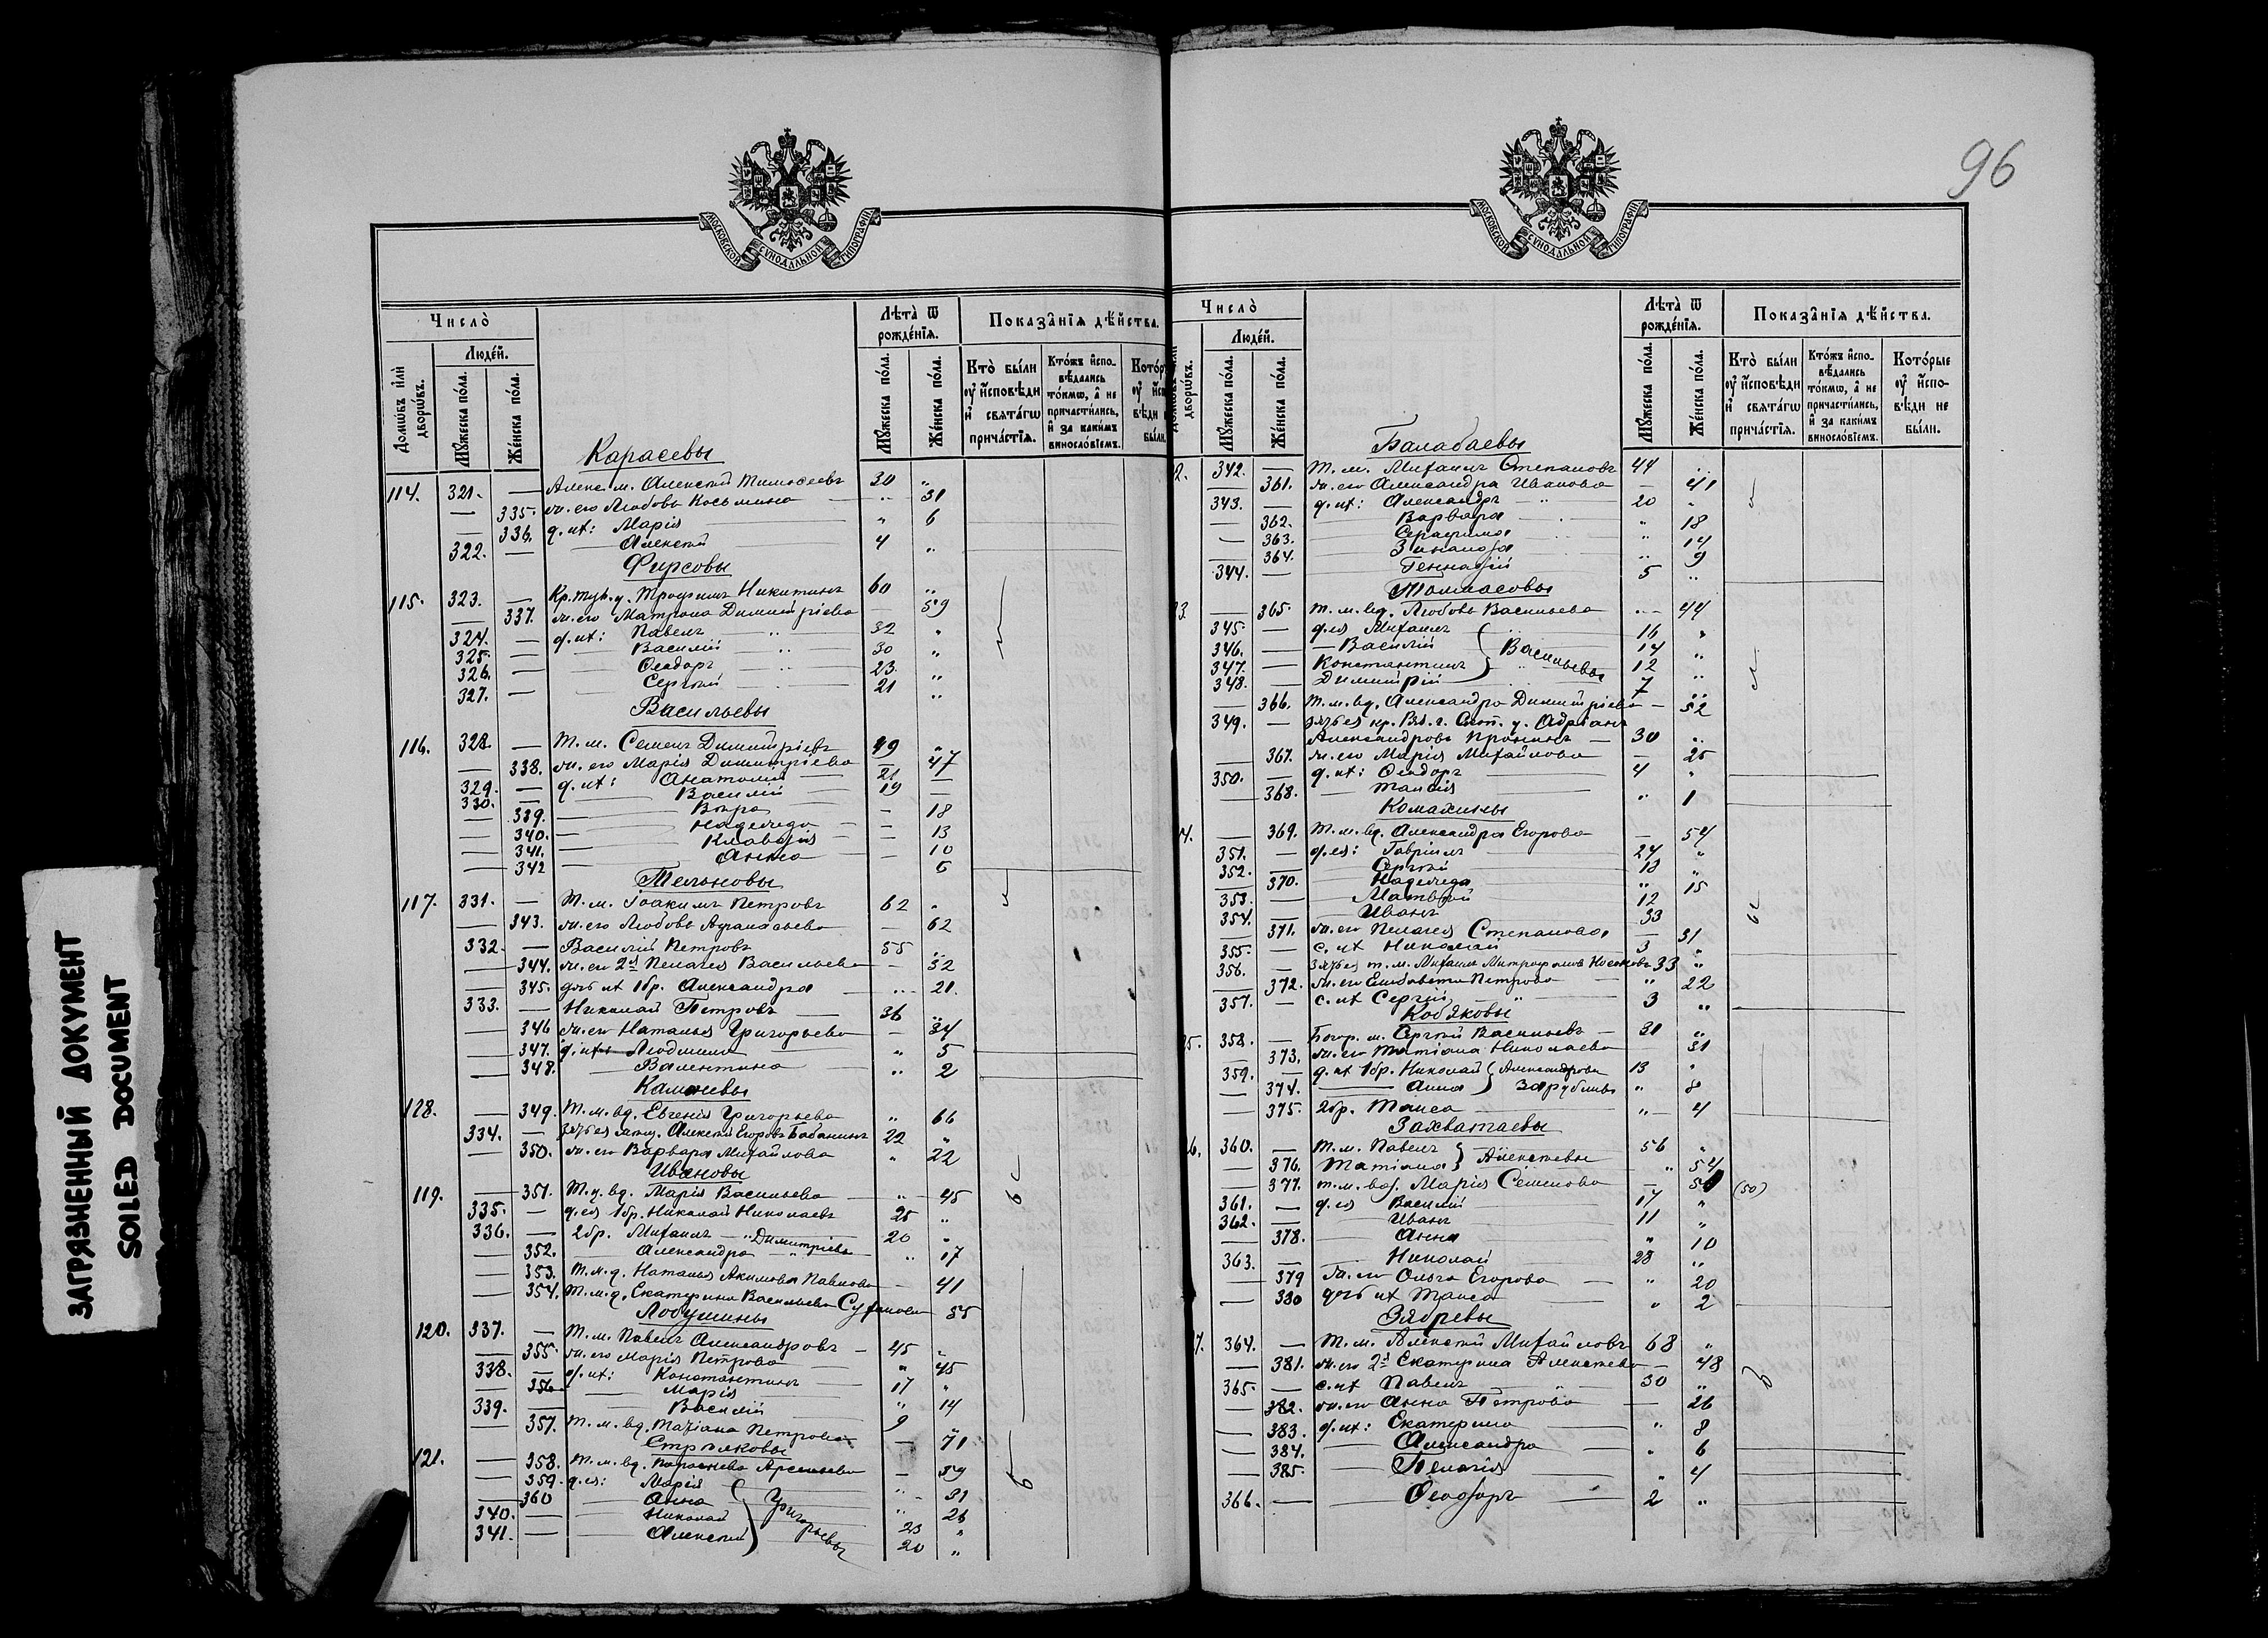 96
ЗАГРЯЗНЕННЫЙ ДОКУМЕНТ
SOILED DOCUMENT
МОСКОВСКОЙ СѴНОДАЛЬНОЙ ТИПОГРАФІИ
Число̀
Люде́й.
Домѡ́въ и҆лѝ дворѡ́въ.
Мꙋ́жеска по́ла.
Же́нска по́ла.
Лѣта̀ ѿ рожде́нїѧ.
Мꙋ́жеска по́ла.
Же́нска по́ла.
Показа̑нїѧ дѣ́йства.
Кто̀ бы́ли ᲂу҆ и҆сповѣди и҆ свѧта́гѡ прича́стїѧ.
Кто́жъ и҆спо-вѣдались то́кмѡ, а҆ не причасти́лись, и҆ за каки́мъ винословїемъ.
Карасевы
114. 321. — Алекс. м. Алексѣй Тимоѳеевъ 30 "
— 335. ж. его Любовь Косьмина — " 31
— 336. д. их: Марія " 6
322. — Алексѣй 4 "
Фирсовы
115. 323. — Кр. Трофимъ Никитинъ 60 "
— 337. ж. его Матрона Димитріева — 59
324. — д. их: Павелъ " 32 "
325. — Василій " 30 "
326. — Ѳеодоръ " 23 "
327. — Сергѣй 21 "
Васильевы
116. 328. — Т. м. Семенъ Димитріевъ 49 "
— 338. ж. его Марія Димитріева — 47
329. — д. их: Анатолій 21 —
330. — Василій 19 —
— 339. Вѣра — 18
— 340. Надежда — 13
— 341. Клавдія — 10
— 342 Анна — 6
Мельновы
117. 331. — Т. м. Іоакимъ Петровъ 62 "
— 343. ж. его Любовь Аѳанасьева — 62
332. — Василій Петровъ 55 "
— 344. ж. его 2я Пелагея Васильева — 32
— 345. дочь их 1бр. Александра — 21.
333. — Николай Петровъ 36 "
— 346 ж. его Наталья Григорьева — 34
— 347. д. их Людмила " 5
— 348. Валентина " 2
Каманевы
128. — 349. Т. м. вд. Евгенія Григорьева " 66
334. — зять ея Алексѣй Егоровъ Бабанинъ 22 "
— 350. ж. его Варвара Михайлова " 22
Ивановы
119. — 351. Т. ц. вд. Марія Васильева " 45
335. — д. ея 1бр. Николай Николаевъ 25 "
336. — 2бр. Михаилъ — Димитріевы 20 "
— 352. Александра " 17
— 353. Т. м. д. Наталья Акимова Павлова — 41
— 354. Т. м. д. Екатерина Васильева 55
Лобушины
120. 337. — Т. м. Павелъ Александровъ — 45 "
— 355. ж. его Марія Петрова " 45
338. — д. их: Константинъ 17 "
— 356 Марія " 14
339. — Василій 9 "
— 357. Т. м. вд. Татіана Петрова — 71
Стрѣлковы
121. — 358. Т. м. вд. Парасева Арсеньева — 59
— 359. д. ея: Марія " 31
— 360 Анна Григорьевы " 26
340. — Николай 23 "
341. — Алексѣй 20 "
Число̀
Люде́й.
дворѡ́въ.
Мꙋ́жеска по́ла.
Же́нска по́ла.
Лѣта̀ ѿ рожде́нїѧ.
Мꙋ́жеска по́ла.
Же́нска по́ла.
Показа̑нїѧ дѣ́йства.
Кто̀ бы́ли ᲂу҆ и҆сповѣди и҆ свѧта́гѡ прича́стїѧ.
Кто́жъ и҆спо-вѣдались то́кмѡ, а҆ не причасти́лись, и҆ за каки́мъ винословїемъ.
Кото́рые ᲂу҆ и҆спо-вѣди не бы́ли.
Балабаевы
2. 342. — Т. м. Михаилъ Степановъ 44 "
— 361. ж. его Александра Иванова — 41
343. — д. их: Александръ " 20 "
— 362. Варвара " 18
— 363. Серафима " 14
— 364. Зинаида " 9
344. — Геннадій 5 "
Томасовы
3 — 365. Т. м. вд. Любовь Васильева " 44
345. — д. ея Михаилъ 16 "
346. — Василій Васильевы 14 "
347. — Константинъ 12 "
348. — Димитрій 7 "
— 366. Т. м. вд. Александра Димитріева — 52
349. — зять ея кр. Адріанъ
Александровъ Пронинъ 30 "
— 367. ж. его Марія Михайлова — 25
350. — д. их: Ѳеодоръ 4 "
— 368. Таисія " 1
Комахины
4. — 369. Т. м. вд. Александра Егорова — 54
351. — д. ея: Гавріилъ 24 "
352. — Сергѣй 18 "
— 370. Надежда " 15
353. — Матвѣй 12
354. — Иванъ 33
— 371. ж. его Пелагея Степанова — 31
355. — с. их Николай 3 "
356. — зять ея т. м. Михаилъ Митрофановъ 33 "
— 372. ж. его Елисавета Петрова " 22
357. — с. их Сергій " 3 "
Кобяковы
5. 358. — Богор. м. Сергѣй Васильевъ — 31 "
— 373. ж. его Татіана Николаева 31
359. — д. их 1бр. Николай Александровы 13 "
— 374. Анна Зарубины " 8
— 375. 2бр. Таиса " 4
Захватаевы
6. 360. — Т. м. Павелъ Алексѣевы 56 "
— 376. Татіана " 54
— 377. т. м. вд. Марія Семенова — (50)
361. — д. ея Василій 17 "
362. — Иванъ 11 "
— 378. Анна " 10
363. — Николай 28 "
— 379 ж. его Ольга Егорова " 20
— 380 дочь их Таиса " 2
Зябревы
7. 364. — Т. м. Алексѣй Михайловъ 68 "
— 381. ж. его 2я Екатерина Алексѣева — 48
365. — с. их Павелъ 30 "
— 382. ж. его Анна Петрова — 26
— 383. д. их: Екатерина " 8
— 384. Александра " 6
— 385. Пелагія " 4
366. — Ѳеодоръ 2 "